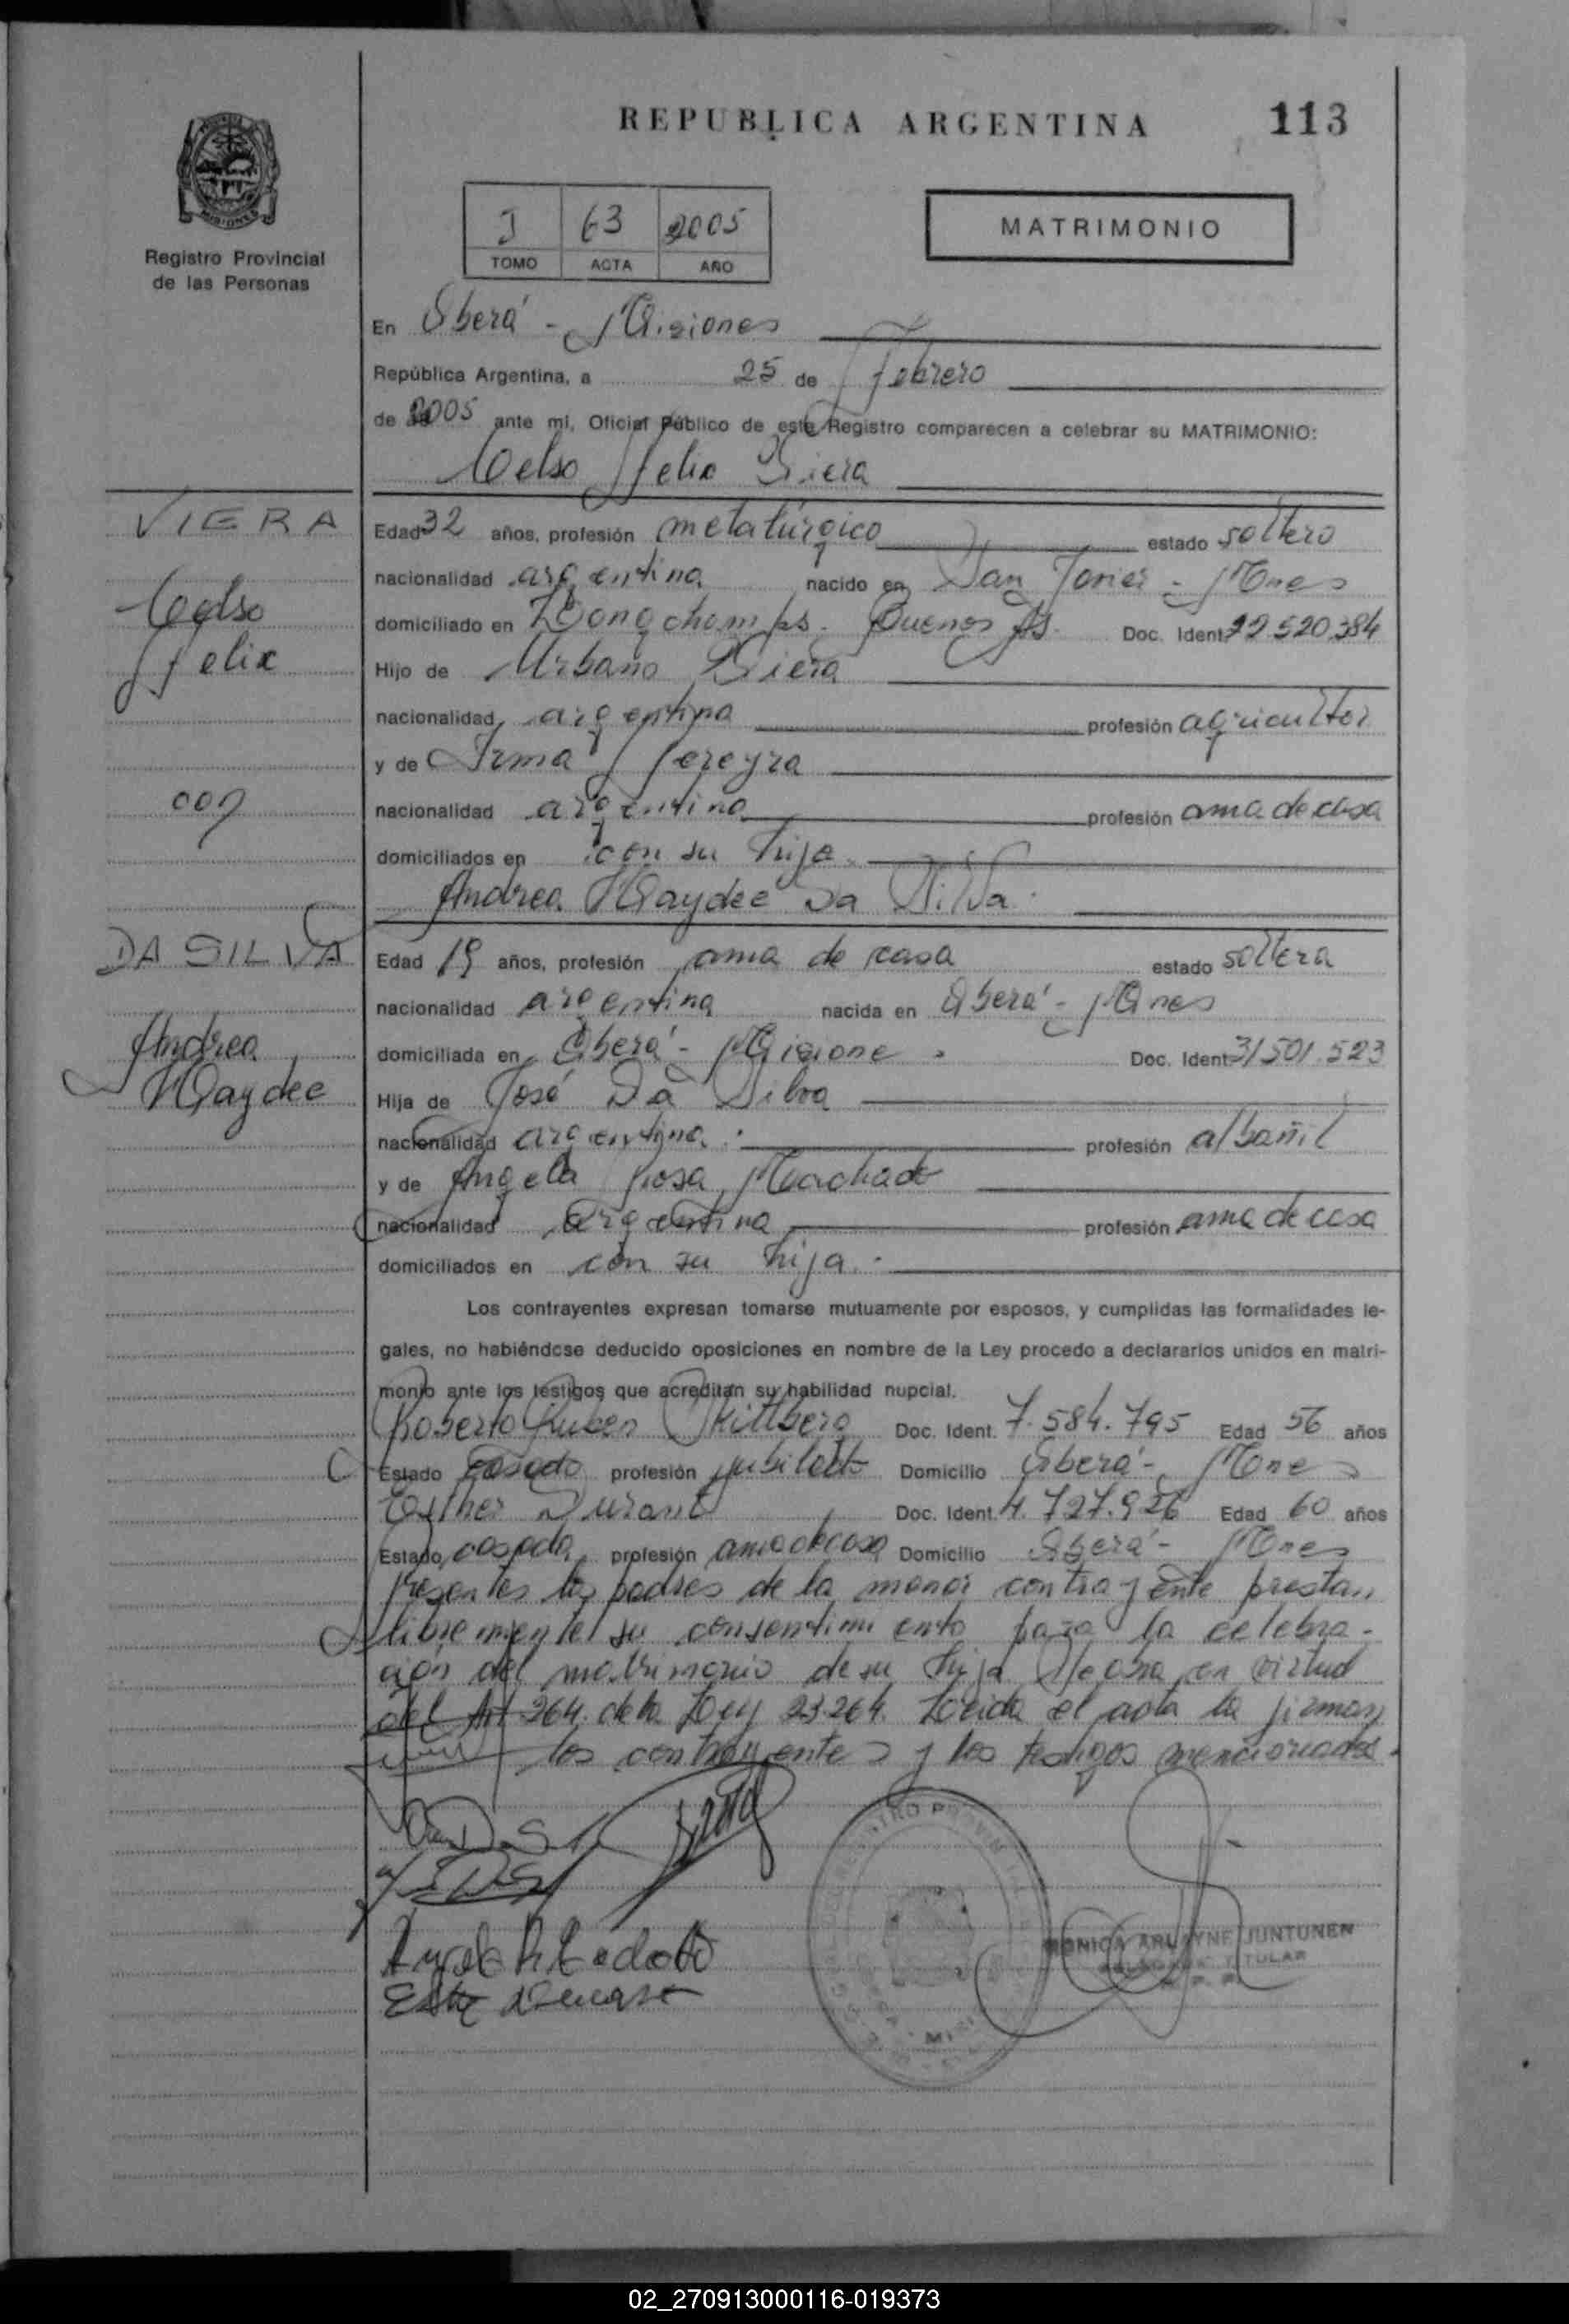 REPUBLICA ARGENTINA 113
Registro Provincial
de las Personas
I 63 2005
TOMO ACTA AÑO
MATRIMONIO
En Oberá - Misiones
República Argentina, a 25 de Febrero
de 2005 ante mi, Oficial Público de este Registro comparecen a celebrar su MATRIMONIO:
Celso Felix Viera
VIERA
Celso
Felix
con
Edad 32 años, profesión metalúrgico estado soltero
nacionalidad argentina nacido en San Javier - Mnes
domiciliado en Longchamps. Buenos As. Doc. Ident. 22520384
Hijo de Urbano Viera
nacionalidad argentina profesión agricultor
y de Irma Pereyra
nacionalidad argentina profesión ama de casa
domiciliados en con su hija.
Andrea Haydee Da Silva.
DA SILVA
Andrea
Haydee
Edad 19 años, profesión ama de casa estado soltera
nacionalidad argentina nacida en Oberá - Mnes
domiciliada en Oberá - Misione Doc. Ident. 31501.523
Hija de José Da Silva
nacionalidad argentina. profesión albañil
y de Angela Rosa Machado
nacionalidad argentina profesión ama de casa
domiciliados en con su hija.
Los contrayentes expresan tomarse mutuamente por esposos, y cumplidas las formalidades le-
gales, no habiéndose deducido oposiciones en nombre de la Ley procedo a declararlos unidos en matri-
monio ante los testigos que acreditan su habilidad nupcial.
Roberto Ruben Doc. Ident. 7.584.795 Edad 56 años
Estado casado profesión jubilado Domicilio Oberá - Mnes
Esther Durant Doc. Ident. 4.727.926 Edad 60 años
Estado casada profesión ama de casa Domicilio Oberá - Mnes
Presentes los padres de la menor contrayente prestan
libremente su consentimiento para la celebra-
ción del matrimonio de su hija en virtud
del Art 264. de la Ley 23.264. Leida el acta la firman
los contrayentes y los testigos mencionados.
MONICA ARLAYNE JUNTUNEN
TITULAR
02_270913000116-019373